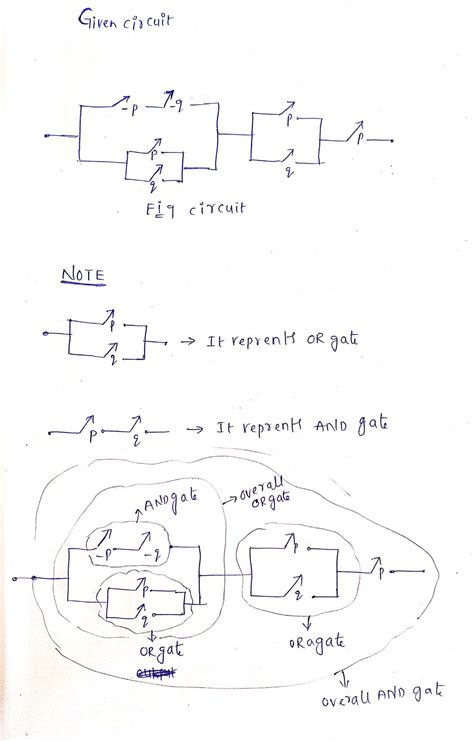 Given circuit
-p -q
p
p
p
q
q
Fig circuit
NOTE
p
q
→ It reprents OR gate
p q → It reprents AND gate
AND gate
→ overall
OR gate
-p -q
p
p
p
q
q
OR gate
output
OR agate
overall AND gate